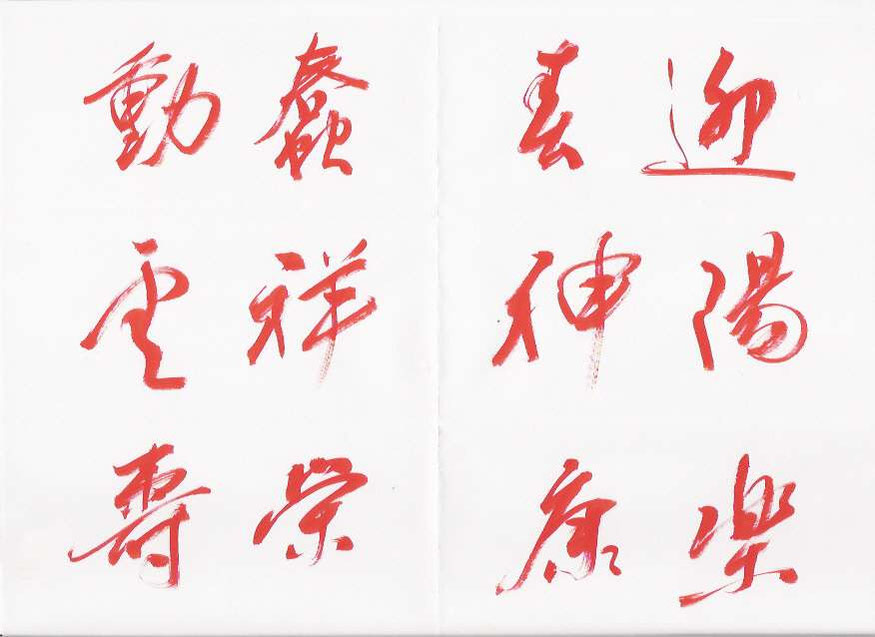 迎春蠢動
陽神祥云
樂康榮壽